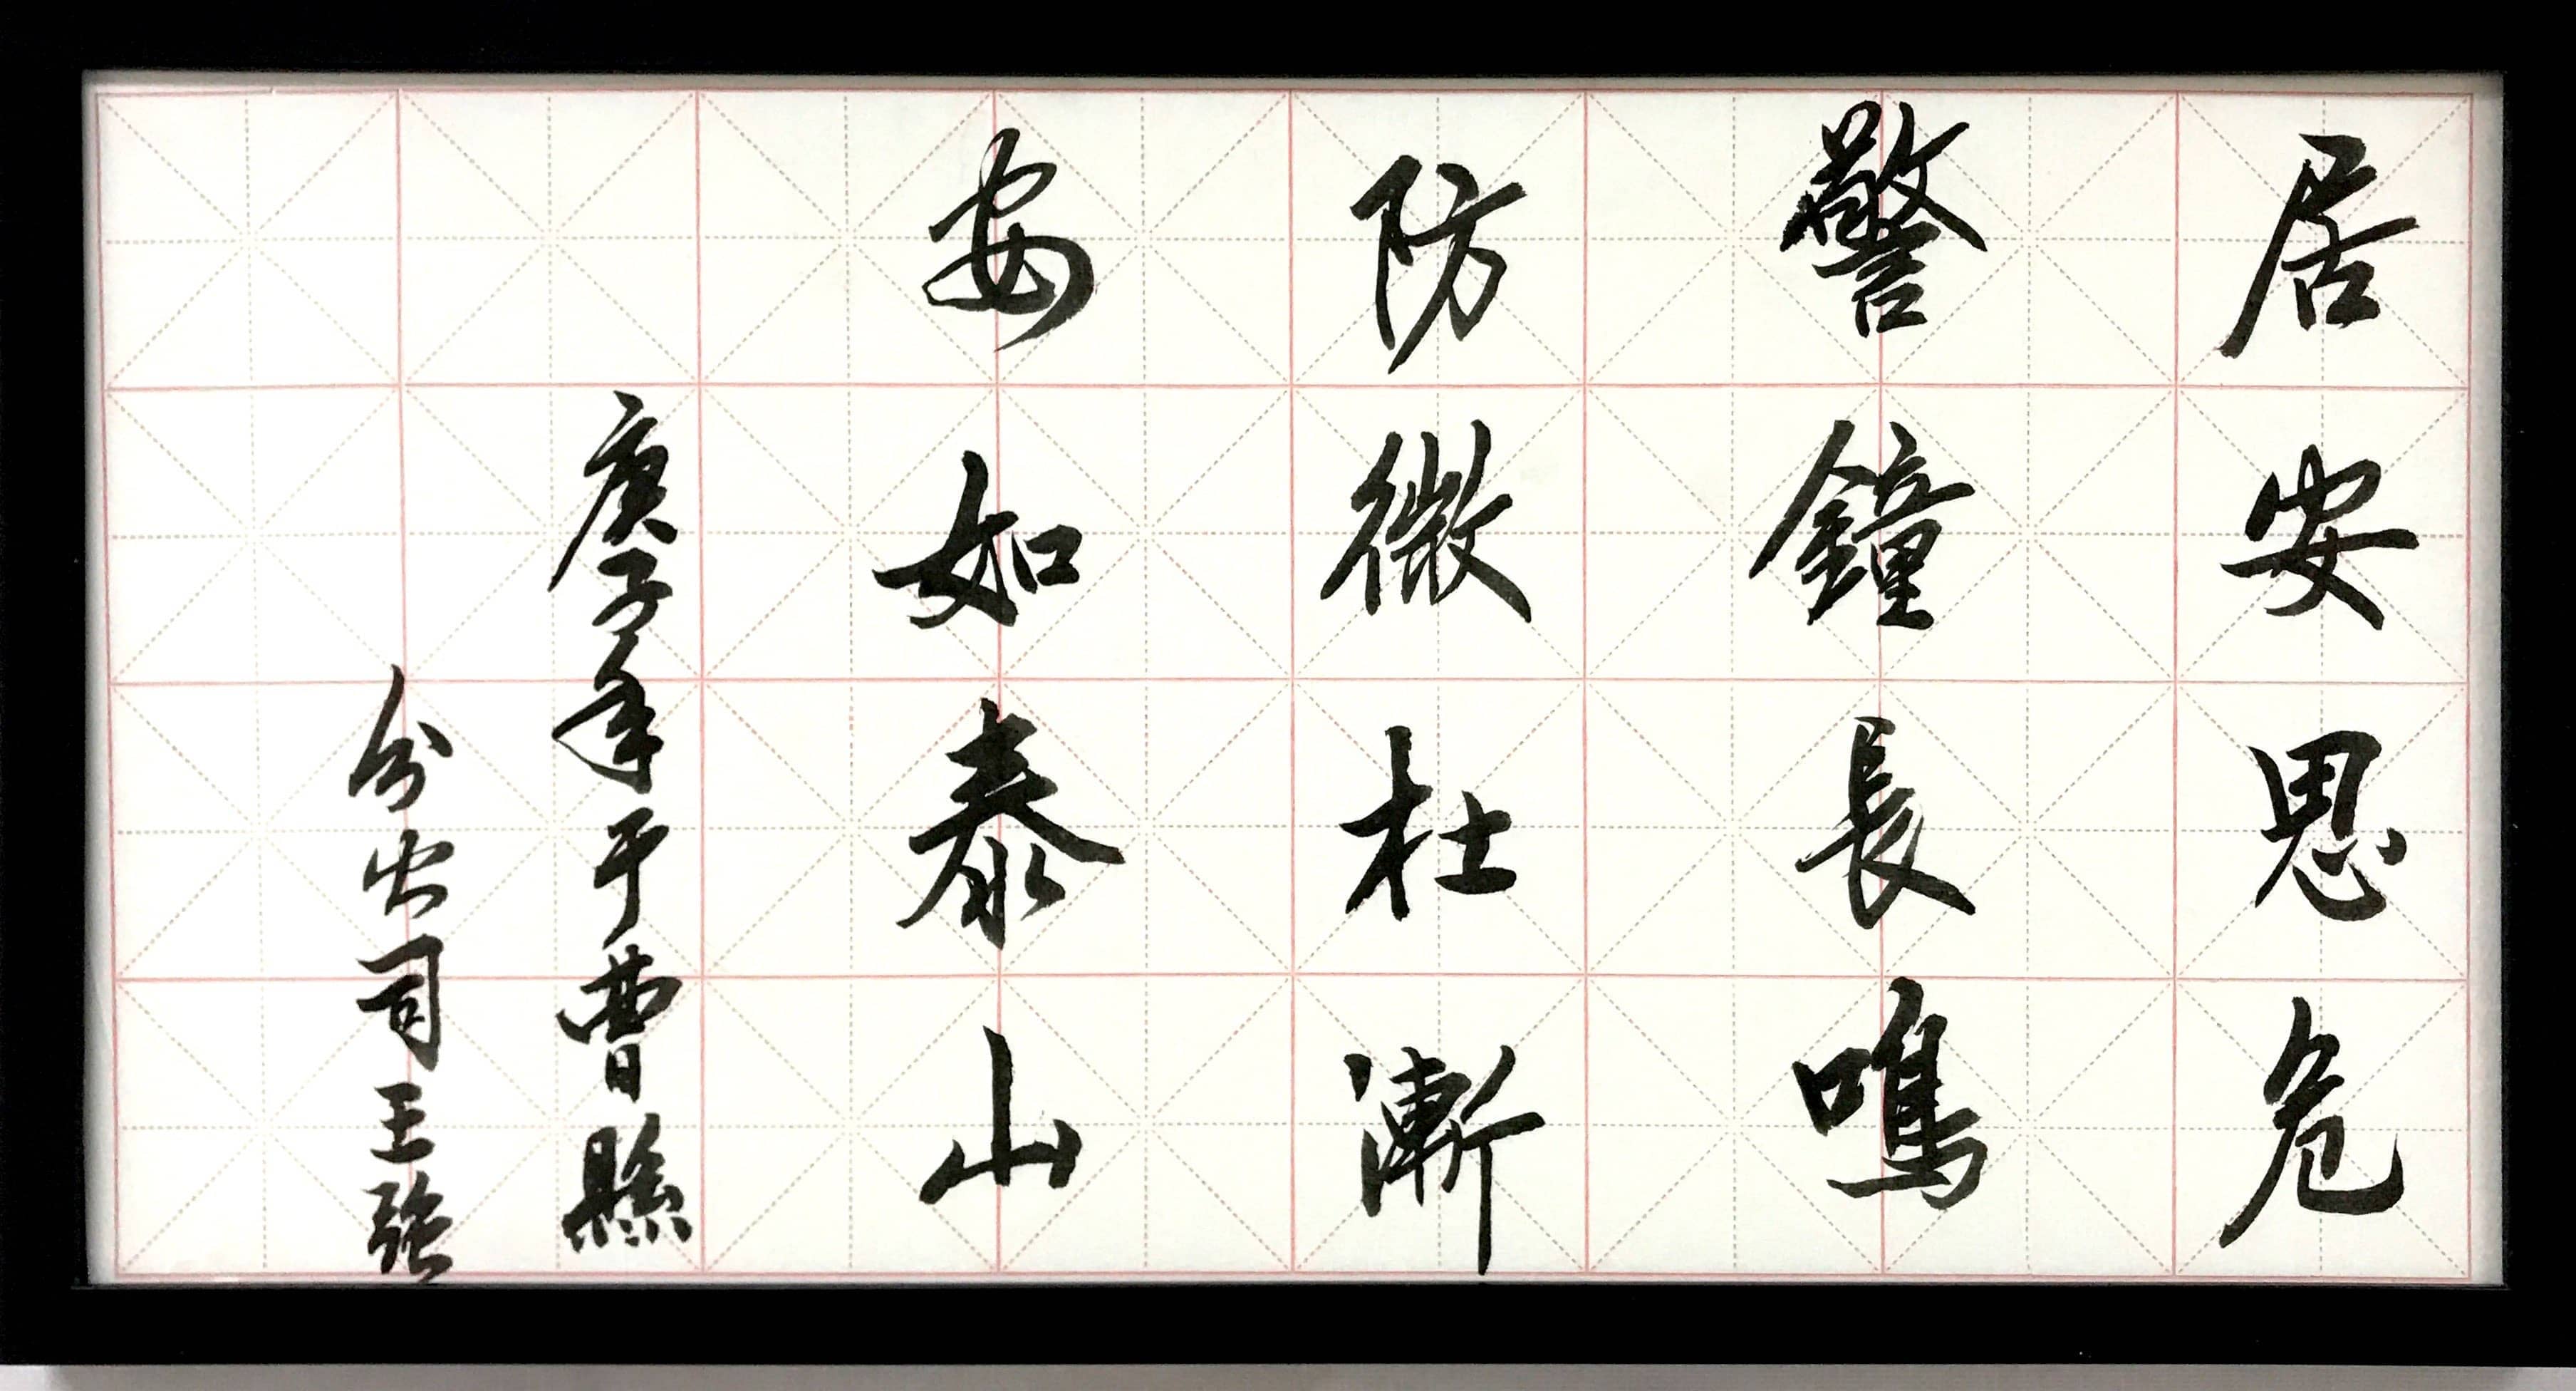 居安思危
警鐘長鳴
防微杜漸
安如泰山
庚子年于曹縣
分公司王強